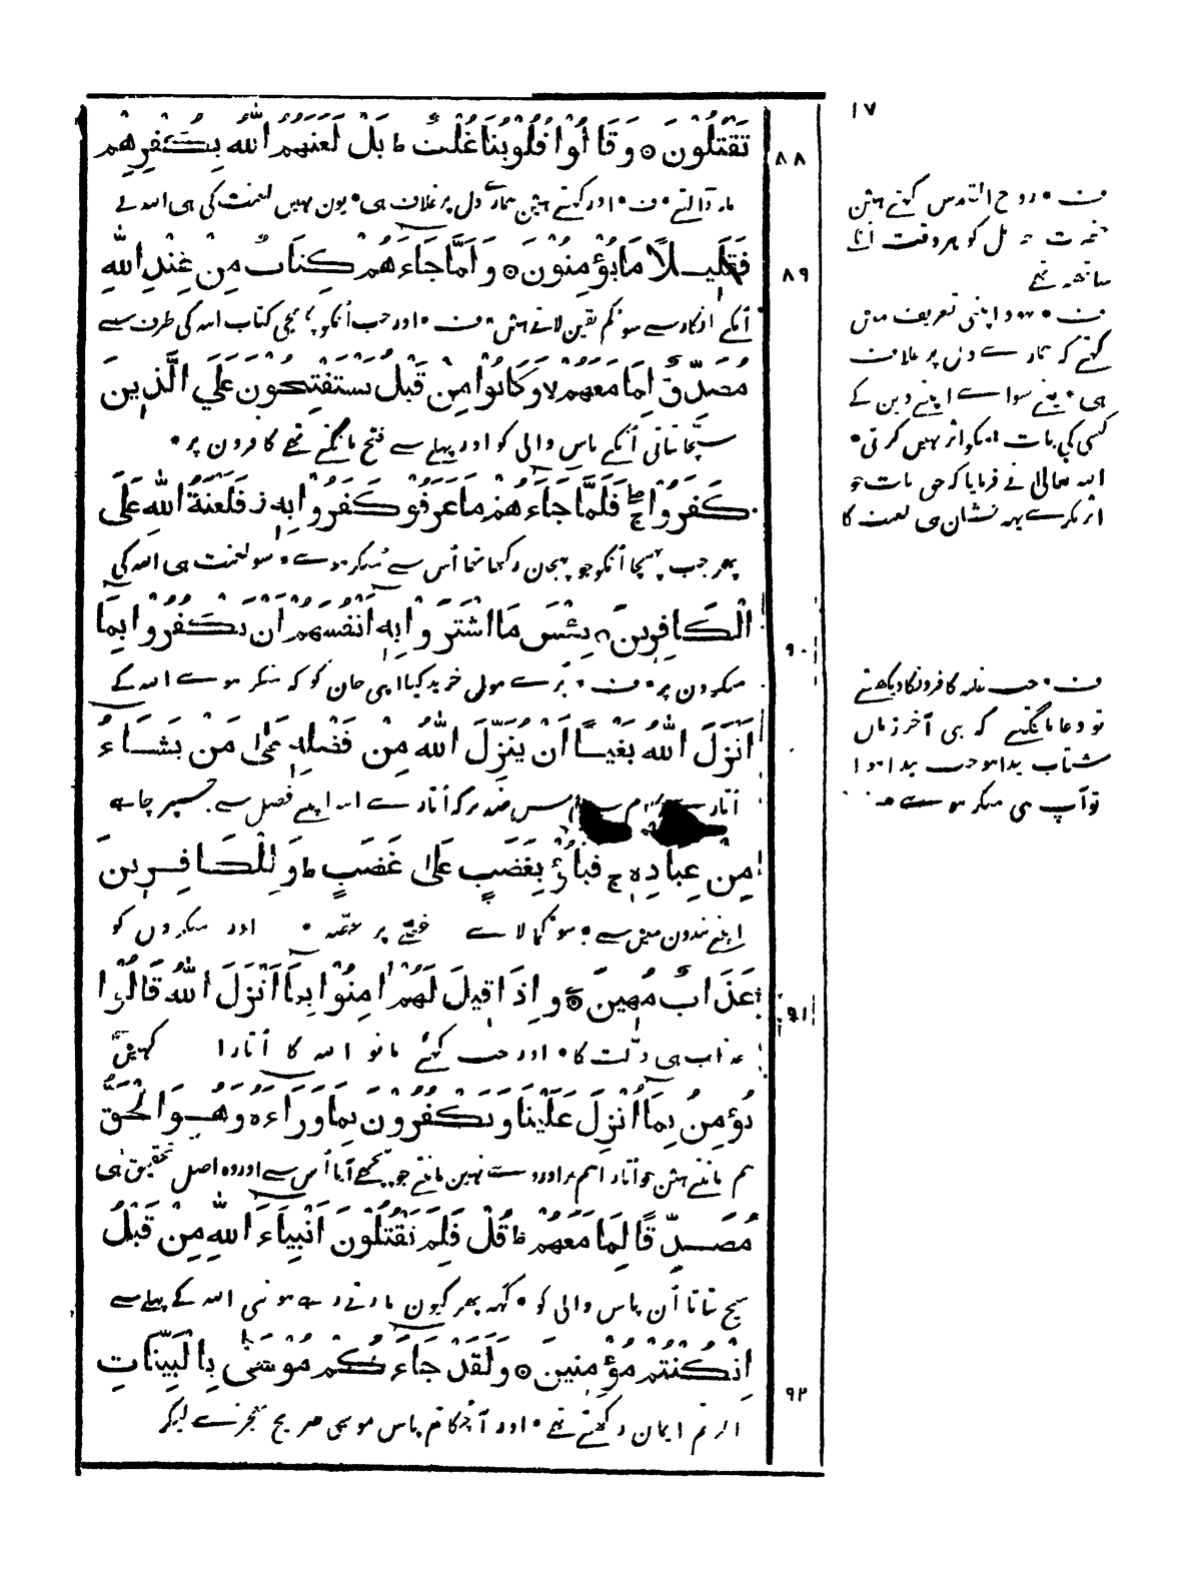 ١٧
تَقْتُلُونَ ۞ وَقَالُوْا قُلُوْبُنَا غُلْفٌ ط بَلْ لَعَنَهُمُ اللّٰهُ بِكُفْرِهِمْ
٨٨
مار ڈالتے • ف • اور کہتے ہین ہمارے دل پر غلاف ہی • یون نہیں لعنت کی ہی اللہ نے
فَقَلِيلًا مَا يُؤْمِنُوْنَ ۞ وَلَمَّا جَاءَهُمْ كِتَابٌ مِنْ عِنْدِ اللّٰهِ
٨٩
اُنکے انکار سے سو کم یقین لاتے ہین • ف • اور جب اُنکو پہنچی کتاب اللہ کی طرف سے
مُصَدِّقٌ لِمَا مَعَهُمْ لا وَكَانُوْا مِنْ قَبْلُ يَسْتَفْتِحُوْنَ عَلَي الَّذِينَ
سچا بتاتی اُنکے پاس والی کو اور پہلے سے فتح مانگتے تھے کافرون پر •
كَفَرُوْا ج فَلَمَّا جَاءَهُمْ مَا عَرَفُوْا كَفَرُوْا بِهٖ ز فَلَعْنَةُ اللّٰهِ عَلَى
پھر جب پہنچا اُنکو جو پہچان رکھا تھا اُس سے مُنکر ہوے • سو لعنت ہی اللہ کی
الْكَافِرِينَ بِئْسَ مَا اشْتَرَوْا بِهٖ اَنْفُسَهُمْ اَنْ يَكْفُرُوْا بِمَا
٩٠
منکرون پر • ف • بُرے مول خرید کیا اپنی جان کو کہ منکر ہوے اللہ کے
اَنْزَلَ اللّٰهُ بَغْيًا اَنْ يُنَزِّلَ اللّٰهُ مِنْ فَضْلِهٖ عَلٰى مَنْ يَشَاءُ
اُتارے سے اللہ اپنے فضل سے جسپر چاہے
مِنْ عِبَادِهٖ ج فَبَاؤُ بِغَضَبٍ عَلٰى غَضَبٍ ط وَلِلْكَافِرِينَ
اپنے بندون مین سے • سو کما لاے غصّے پر غصّہ • اور منکروں کو
عَذَابٌ مُهِينٌ ۞ وَاِذَا قِيلَ لَهُمْ اٰمِنُوْا بِمَا اَنْزَلَ اللّٰهُ قَالُوْا
٩١
عذاب ہی ذلّت کا • اور جب کہئے مانو اللہ کا اُتارا کہین
نُؤْمِنُ بِمَا اُنْزِلَ عَلَيْنَا وَيَكْفُرُوْنَ بِمَا وَرَاءَهُ وَهُوَ الْحَقُّ
ہم مانتے ہین جو اُتارا ہم پر اور وہ نہین مانتے جو پیچھے آیا اُس سے اور وہ اصل تحقیق ہی
مُصَدِّقًا لِمَا مَعَهُمْ ط قُلْ فَلِمَ تَقْتُلُوْنَ اَنْبِيَاءَ اللّٰهِ مِنْ قَبْلُ
سچ بتاتا اُن پاس والی کو • کہہ پھر کیون مارتے رہے ہو نبی اللہ کے پہلے سے
اِنْ كُنْتُمْ مُؤْمِنِينَ ۞ وَلَقَدْ جَاءَكُمْ مُوْسٰى بِالْبَيِّنَاتِ
٩٢
اگر تم ایمان رکھتے تھے • اور آچکا تم پاس موسی صریح معجزے لیکر
ف • روح القدس کہتے ہین
کو ہر وقت اُنکے
ساتھہ تھے
ف • یہود اپنی تعریف مین
کہتے کہ ہمارے دل پر غلاف
ہی • یعنے سواے اپنے دین کے
کسی کی بات ہمکو اثر نہیں کرتی •
اللہ تعالیٰ نے فرمایا کہ حق بات جو
اثر نکرے یہہ نشان ہی لعنت کا
ف • جب غلبہ کافرونکا دیکھتے
تو دعا مانگتے کہ نبی آخر زمان
شتاب پیدا ہو جب پیدا ہوا
تو آپ ہی منکر ہوے